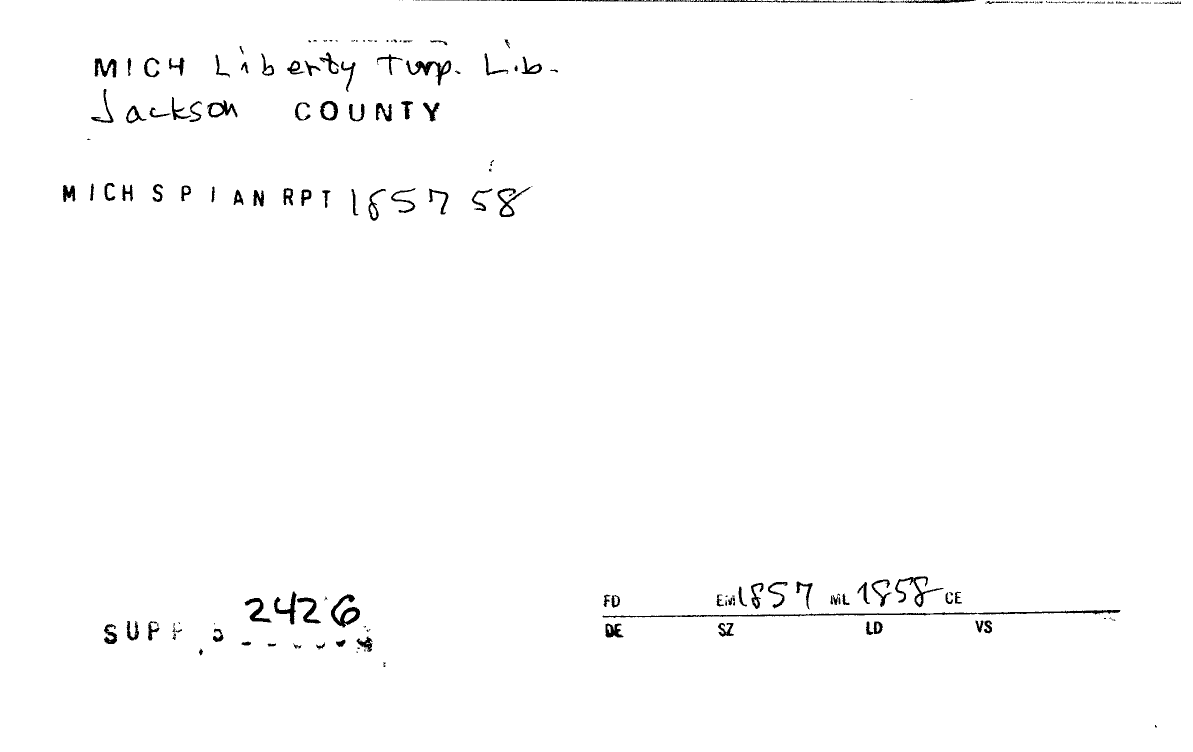 MICH Liberty Twp. Lib.
Jackson COUNTY
MICH S P I AN RPT 1857 58
2426
SUPP
FD EM 1857 ML 1858 CE
DE SZ LD VS